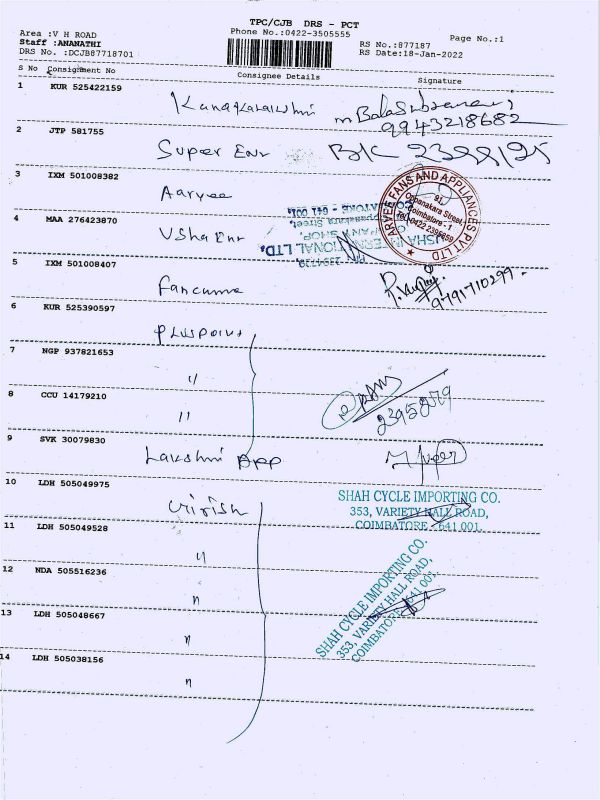 TPC/CJB DRS - PCT
Area :V H ROAD
Phone No.:0422-3505555
Page No.:1
Staff :ANANATHI
RS No.:877187
DRS No. :DCJB87718701
RS Date:18-Jan-2022
S No Consignment No Consignee Details Signature
1 KUR 525422159
9943218682
2 JTP 581755
Super Enr
3 IXM 501008382
Aarvee
ARVEE FANS AND APPLIANCES PVT LTD
Oppanakara Street,
Coimbatore - 1
4 MAA 276423870
Usha Enr
5 IXM 501008407
9791710299
6 KUR 525390597
Pluspoint
7 NGP 937821653
"
8 CCU 14179210
"
9 SVK 30079830
Lakshmi App
10 LDH 505049975
SHAH CYCLE IMPORTING CO.
353, VARIETY HALL ROAD,
COIMBATORE - 641 001.
11 LDH 505049528
"
12 NDA 505516236
"
SHAH CYCLE IMPORTING CO.
353, VARIETY HALL ROAD,
COIMBATORE - 641 001.
13 LDH 505048667
"
14 LDH 505038156
"